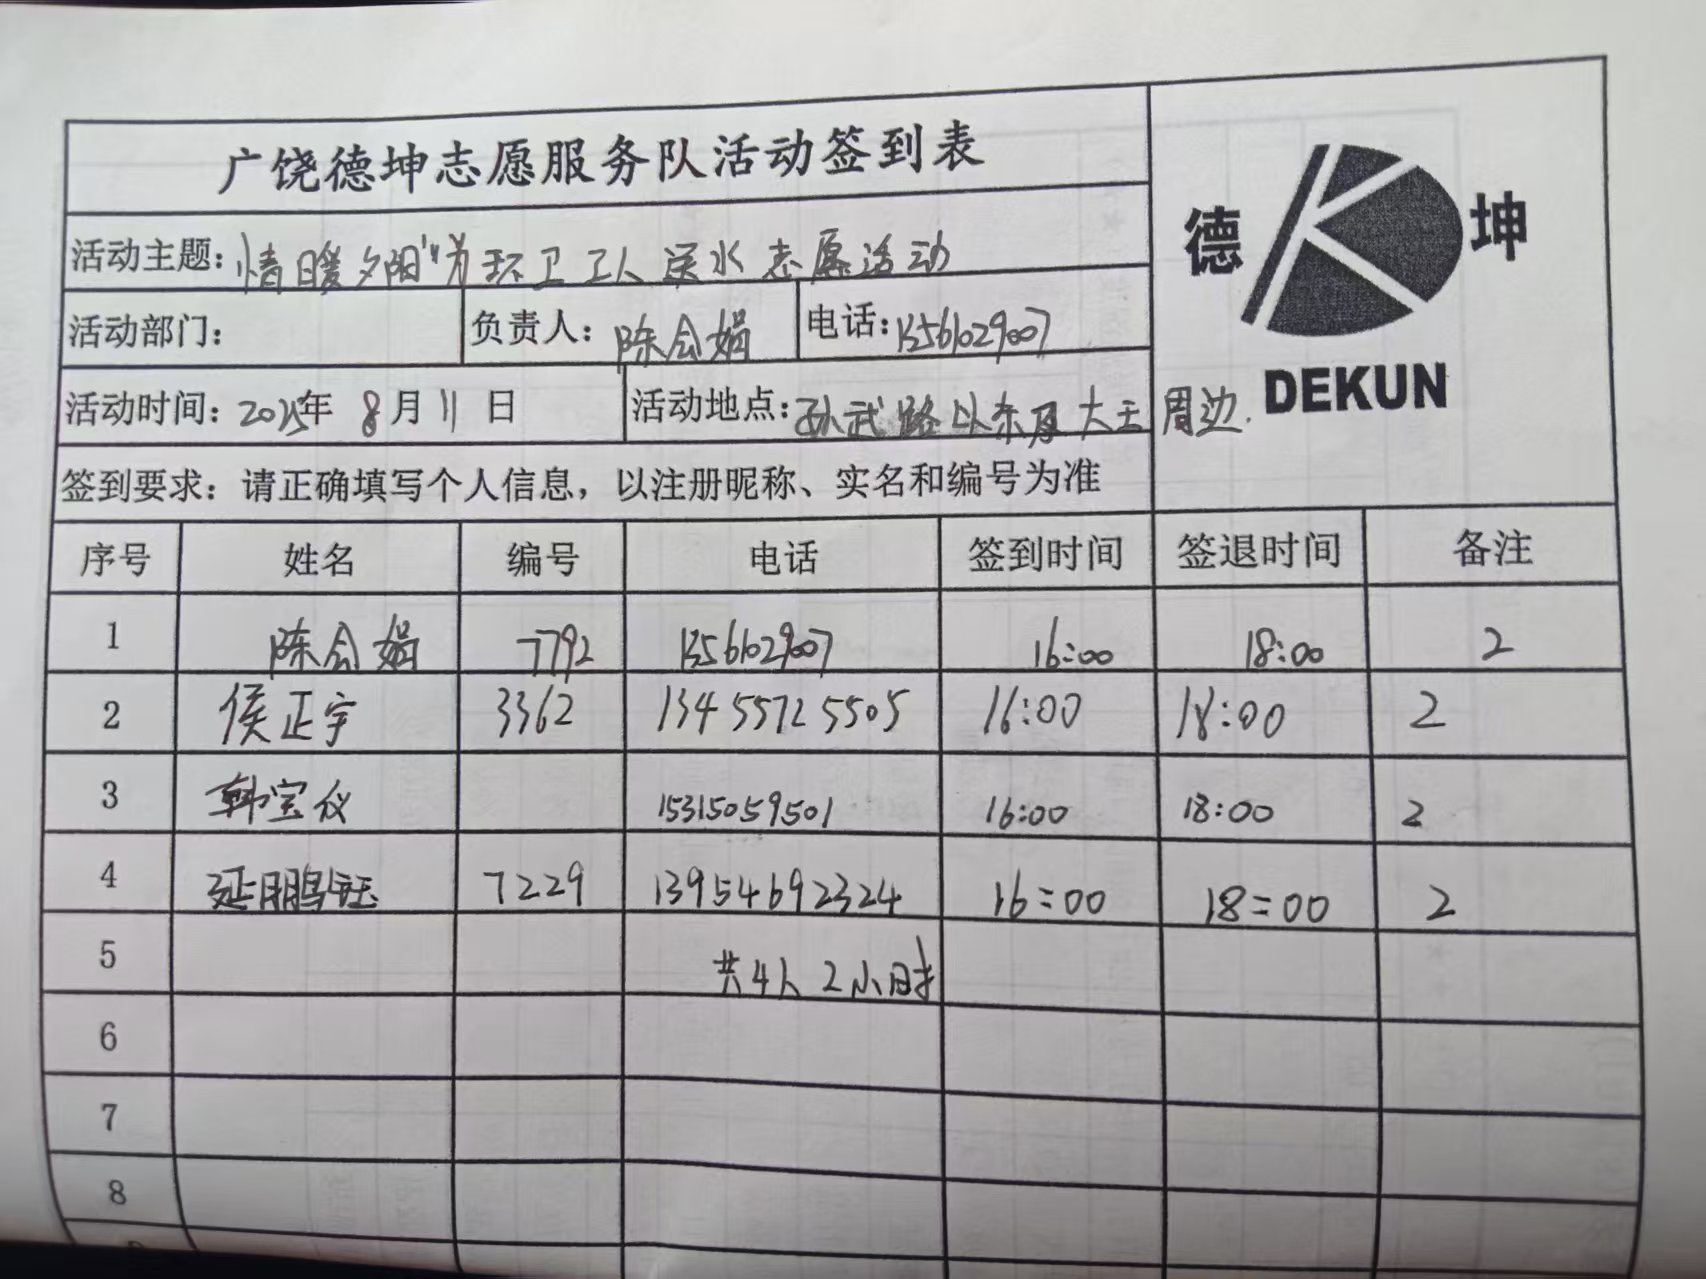 广饶德坤志愿服务队活动签到表
德 坤
DEKUN
活动主题：情暖夕阳"为环卫工人送水志愿活动
活动部门： 负责人：陈会娟 电话：
活动时间：2025年 8月11日 活动地点：孙武路以东及大王周边.
签到要求：请正确填写个人信息，以注册昵称、实名和编号为准
序号 姓名 编号 电话 签到时间 签退时间 备注
1 陈会娟 7792 16:00 18:00 2
2 侯正宇 3362 13455725505 16:00 18:00 2
3 韩宝仪 15315059501 16:00 18:00 2
4 延鹏钰 7229 13954692324 16:00 18:00 2
5 共4人 2小时
6
7
8